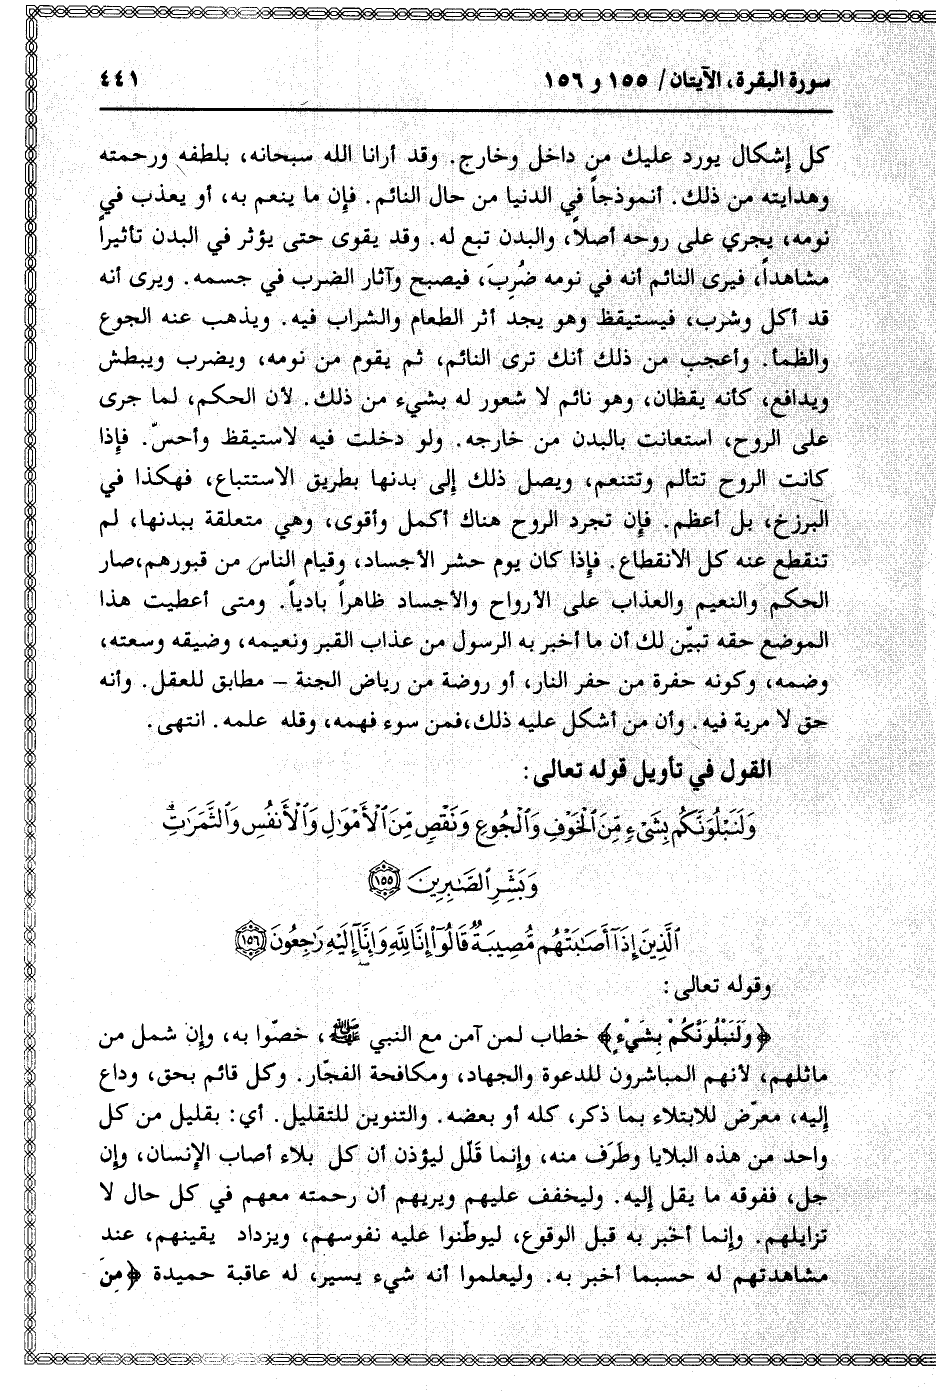 سورة البقرة، الآيتان / ١٥٥ و ١٥٦ ٤٤١
كل إشكال يورد عليك من داخل وخارج. وقد أرانا الله سبحانه، بلطفه ورحمته
وهدايته من ذلك. أنموذجاً في الدنيا من حال النائم. فإن ما ينعم به، أو يعذب في
نومه، يجري على روحه أصلاً، والبدن تبع له. وقد يقوى حتى يؤثر في البدن تأثيراً
مشاهداً، فيرى النائم أنه في نومه ضُرِبَ، فيصبح وآثار الضرب في جسمه. ويرى أنه
قد أكل وشرب، فيستيقظ وهو يجد أثر الطعام والشراب فيه. ويذهب عنه الجوع
والظمأ. وأعجب من ذلك أنك ترى النائم، ثم يقوم من نومه، ويضرب ويبطش
ويدافع، كأنه يقظان، وهو نائم لا شعور له بشيء من ذلك. لأن الحكم، لما جرى
على الروح، استعانت بالبدن من خارجه. ولو دخلت فيه لاستيقظ وأحسّ. فإذا
كانت الروح تتألم وتتنعم، ويصل ذلك إلى بدنها بطريق الاستتباع، فهكذا في
البرزخ، بل أعظم. فإن تجرد الروح هناك أكمل وأقوى، وهي متعلقة ببدنها، لم
تنقطع عنه كل الانقطاع. فإذا كان يوم حشر الأجساد، وقيام الناس من قبورهم،صار
الحكم والنعيم والعذاب على الأرواح والأجساد ظاهراً بادياً. ومتى أعطيت هذا
الموضع حقه تبيّن لك أن ما أخبر به الرسول من عذاب القبر ونعيمه، وضيقه وسعته،
وضمه، وكونه حفرة من حفر النار، أو روضة من رياض الجنة – مطابق للعقل. وأنه
حق لا مرية فيه. وأن من أشكل عليه ذلك،فمن سوء فهمه، وقله علمه. انتهى.
القول في تأويل قوله تعالى:
وَلَنَبْلُوَنَّكُم بِشَىْءٍ مِّنَ ٱلْخَوْفِ وَٱلْجُوعِ وَنَقْصٍ مِّنَ ٱلْأَمْوَٰلِ وَٱلْأَنفُسِ وَٱلثَّمَرَٰتِ ۗ
وَبَشِّرِ ٱلصَّٰبِرِينَ ١٥٥
ٱلَّذِينَ إِذَآ أَصَٰبَتْهُم مُّصِيبَةٌ قَالُوٓاْ إِنَّا لِلَّهِ وَإِنَّآ إِلَيْهِ رَٰجِعُونَ ١٥٦
وقوله تعالى:
﴿وَلَنَبْلُوَنَّكُمْ بِشَيْءٍ﴾ خطاب لمن آمن مع النبي ﷺ، خصّوا به، وإن شمل من
ماثلهم، لأنهم المباشرون للدعوة والجهاد، ومكافحة الفجّار. وكل قائم بحق، وداع
إليه، معرّض للابتلاء بما ذكر، كله أو بعضه. والتنوين للتقليل. أي: بقليل من كل
واحد من هذه البلايا وطَرَف منه، وإنما قَلّل ليؤذن أن كل بلاء أصاب الإنسان، وإن
جل، ففوقه ما يقل إليه. وليخفف عليهم ويريهم أن رحمته معهم في كل حال لا
تزايلهم. وإنما أخبر به قبل الوقوع، ليوطّنوا عليه نفوسهم، ويزداد يقينهم، عند
مشاهدتهم له حسبما أخبر به. وليعلموا أنه شيء يسير، له عاقبة حميدة ﴿مِنَ